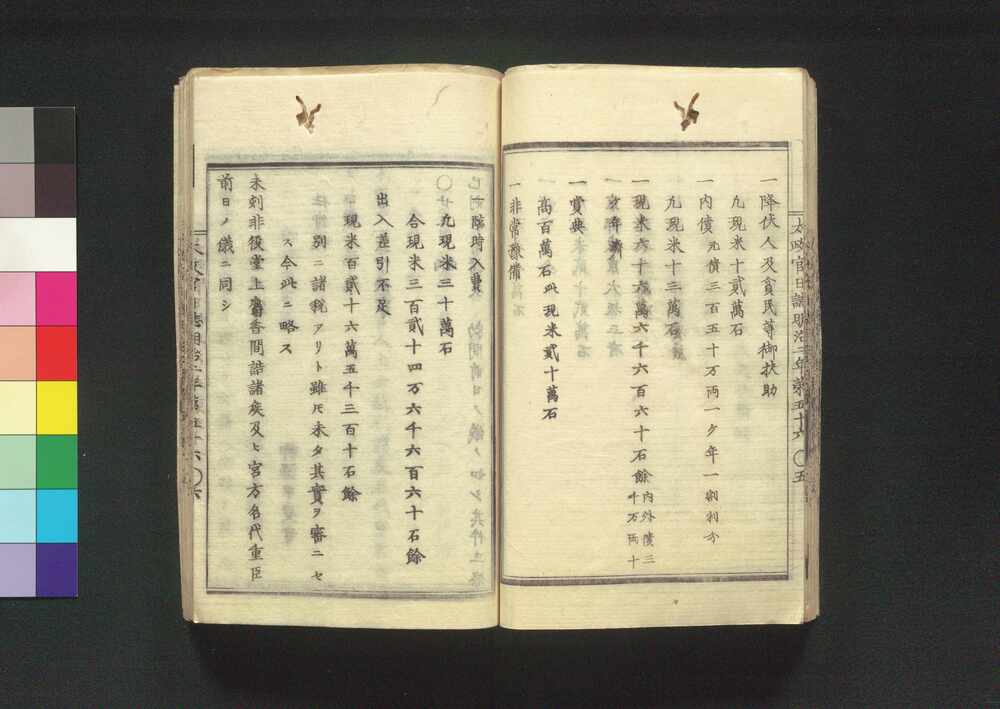 太政官日誌明治二年第五十六 〇五
一降伏人及貧民等御扶助
凡現米十貳萬石
一内債 元債三百五十万両一ケ年一割利分
凡現米十三萬石
一現米六十六萬六千六百六十石餘 内外債三千万両十
一賞典
高百萬石此現米貳十萬石
一非常豫備
臨時入費
凡現米三十萬石
合現米三百貳十四万六千六百六十石餘
出入差引不足
現米百貳十六萬五千三百十石餘
別ニ諸税アリト雖𪜈未タ其實ヲ審ニセ
ス今此ニ略ス
未刻非役堂上麝香間詰諸矦及ヒ宮方名代重臣
前日ノ儀ニ同シ